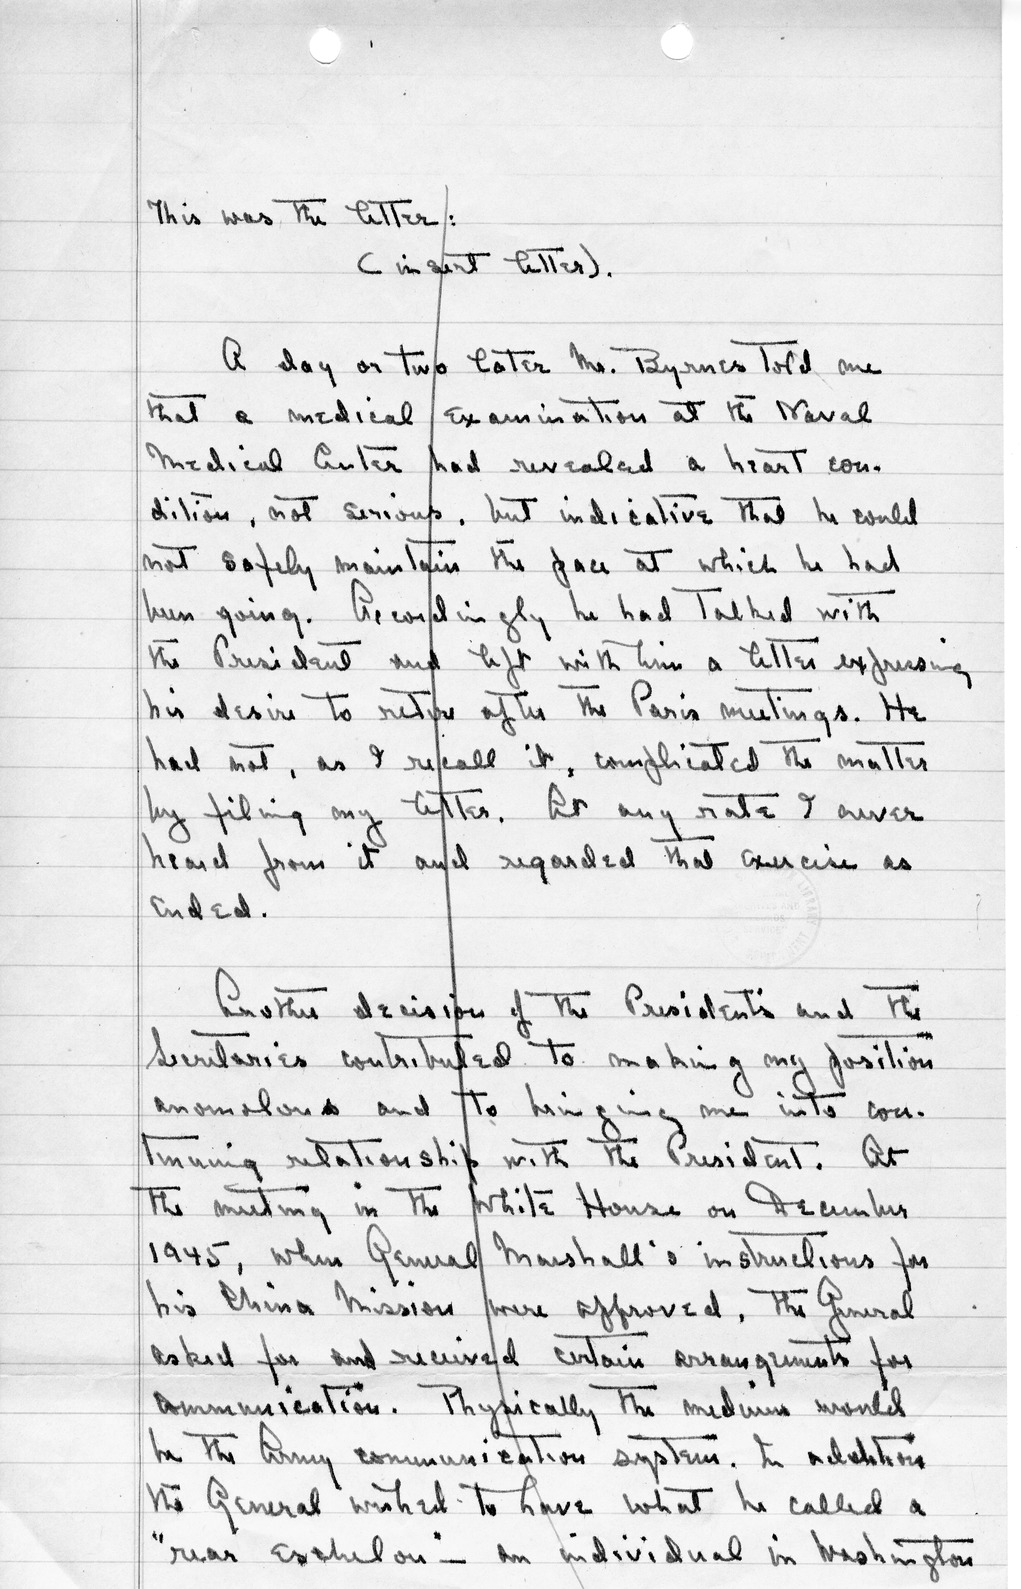 This was the letter:
(insert letter).
A day or two later Mr. Byrnes told me
that a medical examination at the Naval
Medical Center had revealed a heart con-
dition, not serious, but indicative that he could
not safely maintain the pace at which he had
been going. Accordingly he had talked with
the President and left with him a letter expressing
his desire to retire after the Paris meetings. He
had not, as I recall it, complicated the matter
by filing my letter. At any rate I never
heard from it and regarded that exercise as
ended.
Another decision of the President's and the
Secretaries contributed to making my position
anomolous and to bringing me into con-
tinuing relationship with the President. At
the meeting in the White House on December
1945, when General Marshall's instructions for
his China Mission were approved, the General
asked for and received certain arrangements for
communication. Physically the medium would
be the Army communication system. In addition
the General wished to have what he called a
"rear eschelon" — an individual in Washington